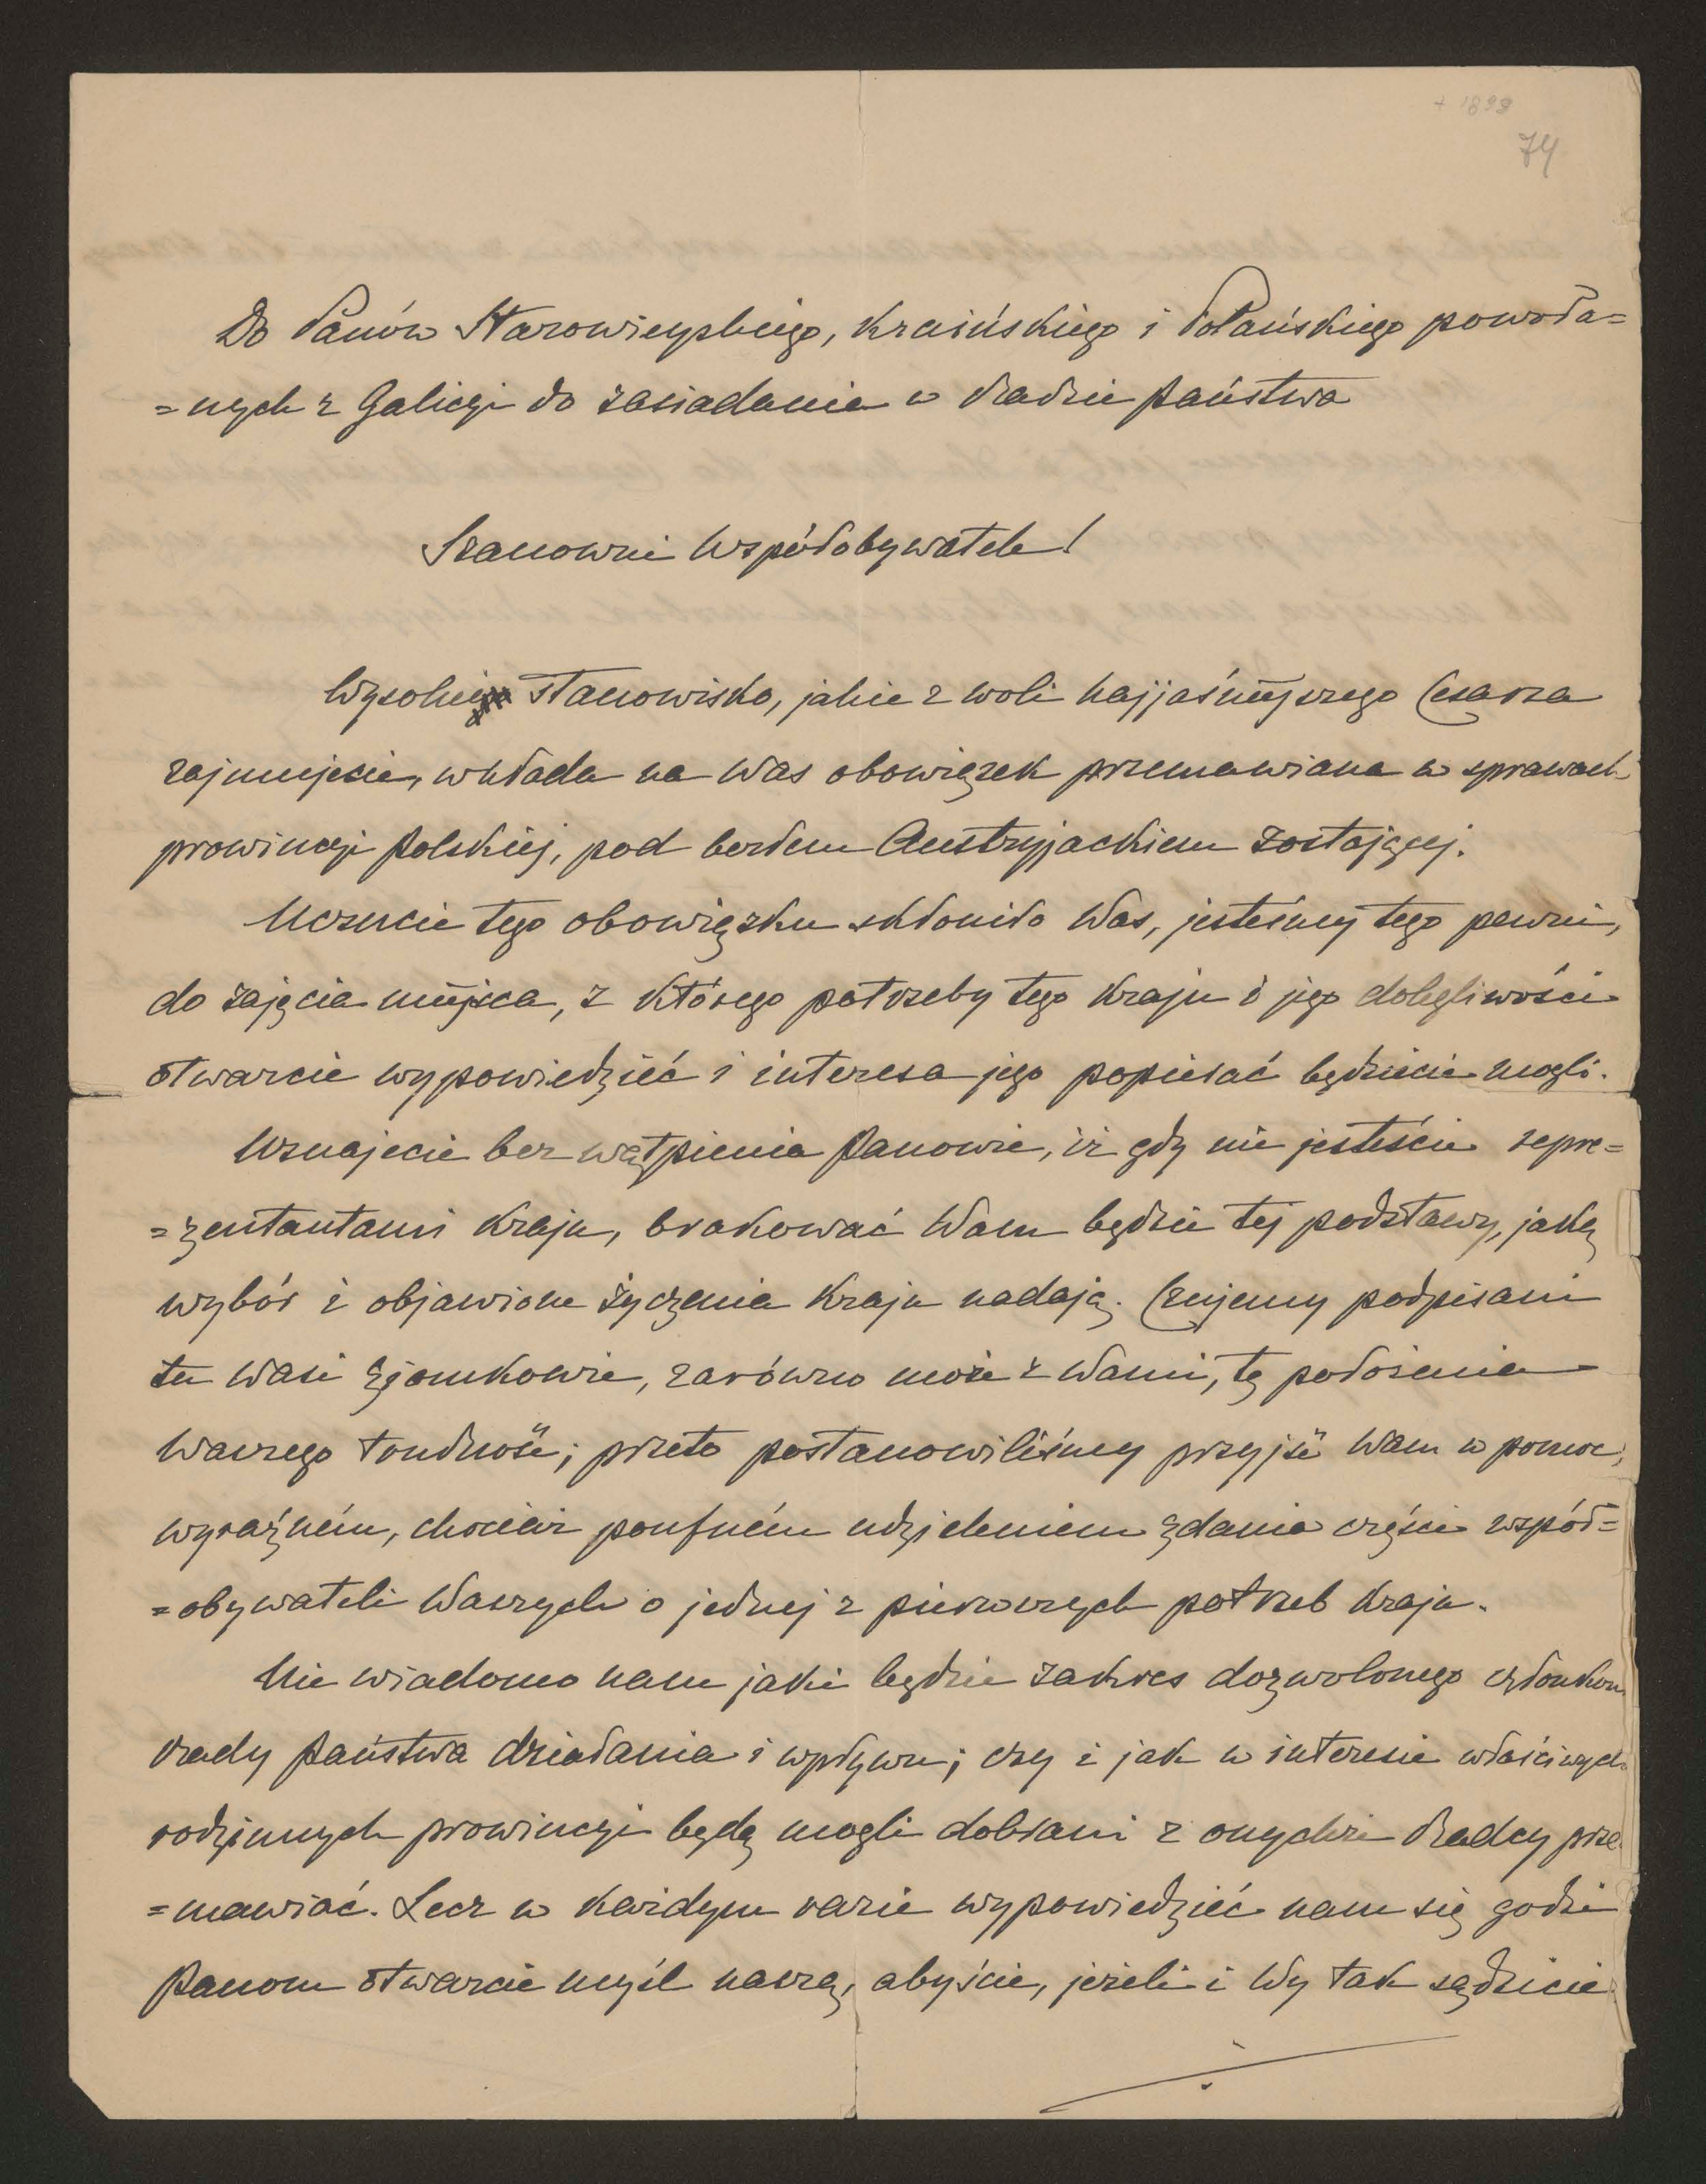 + 1898
74
Do Panów Starowieyskiego, Kraińskiego i Polańskiego powoła=
=nych z Galicyi do zasiadania w Radzie Państwa
Szanowni Współobywatele!
Wysokie stanowisko, jakie z woli Najjaśniejszego Cesarza
zajmujecie, wkłada na Was obowiązek przemawiana w sprawach
prowincyi Polskiej, pod berłem Austryjackiem zostającej.
Uczucie tego obowiązku skłoniło Was, jesteśmy tego pewni,
do zajęcia miejsca, z którego potrzeby tego kraju i jego dolegliwości
otwarcie wypowiedzieć i interesa jego popierać będziecie mogli.
Uznajecie bez wątpienia Panowie, iż gdy nie jesteście repre=
=zentantami kraju, brakować Wam będzie tej podstawy, jaką
wybór i objawione życzenia kraju nadają. Czujemy podpisani
tu Wasi Zjomkowie, zarówno może z Wami, tę położenia
Waszego trudność; przeto postanowiliśmy przyjść Wam w pomoc,
wyraźném, chociaż poufném udzieleniem zdania części współ=
=obywateli Waszych o jednej z pierwszych potrzeb kraju.
Nie wiadomo nam jaki będzie zakres dozwolonego członkom
rady Państwa działania i wpływu; czy i jak w interesie właściwych
rodzinnych prowincyi będą mogli dobrani z onychże Radcy prze
=mawiać. Lecz w każdym razie wypowiedzieć nam się godzi
Panom otwarcie myśl naszą, abyście, jeżeli i Wy tak sądzicie